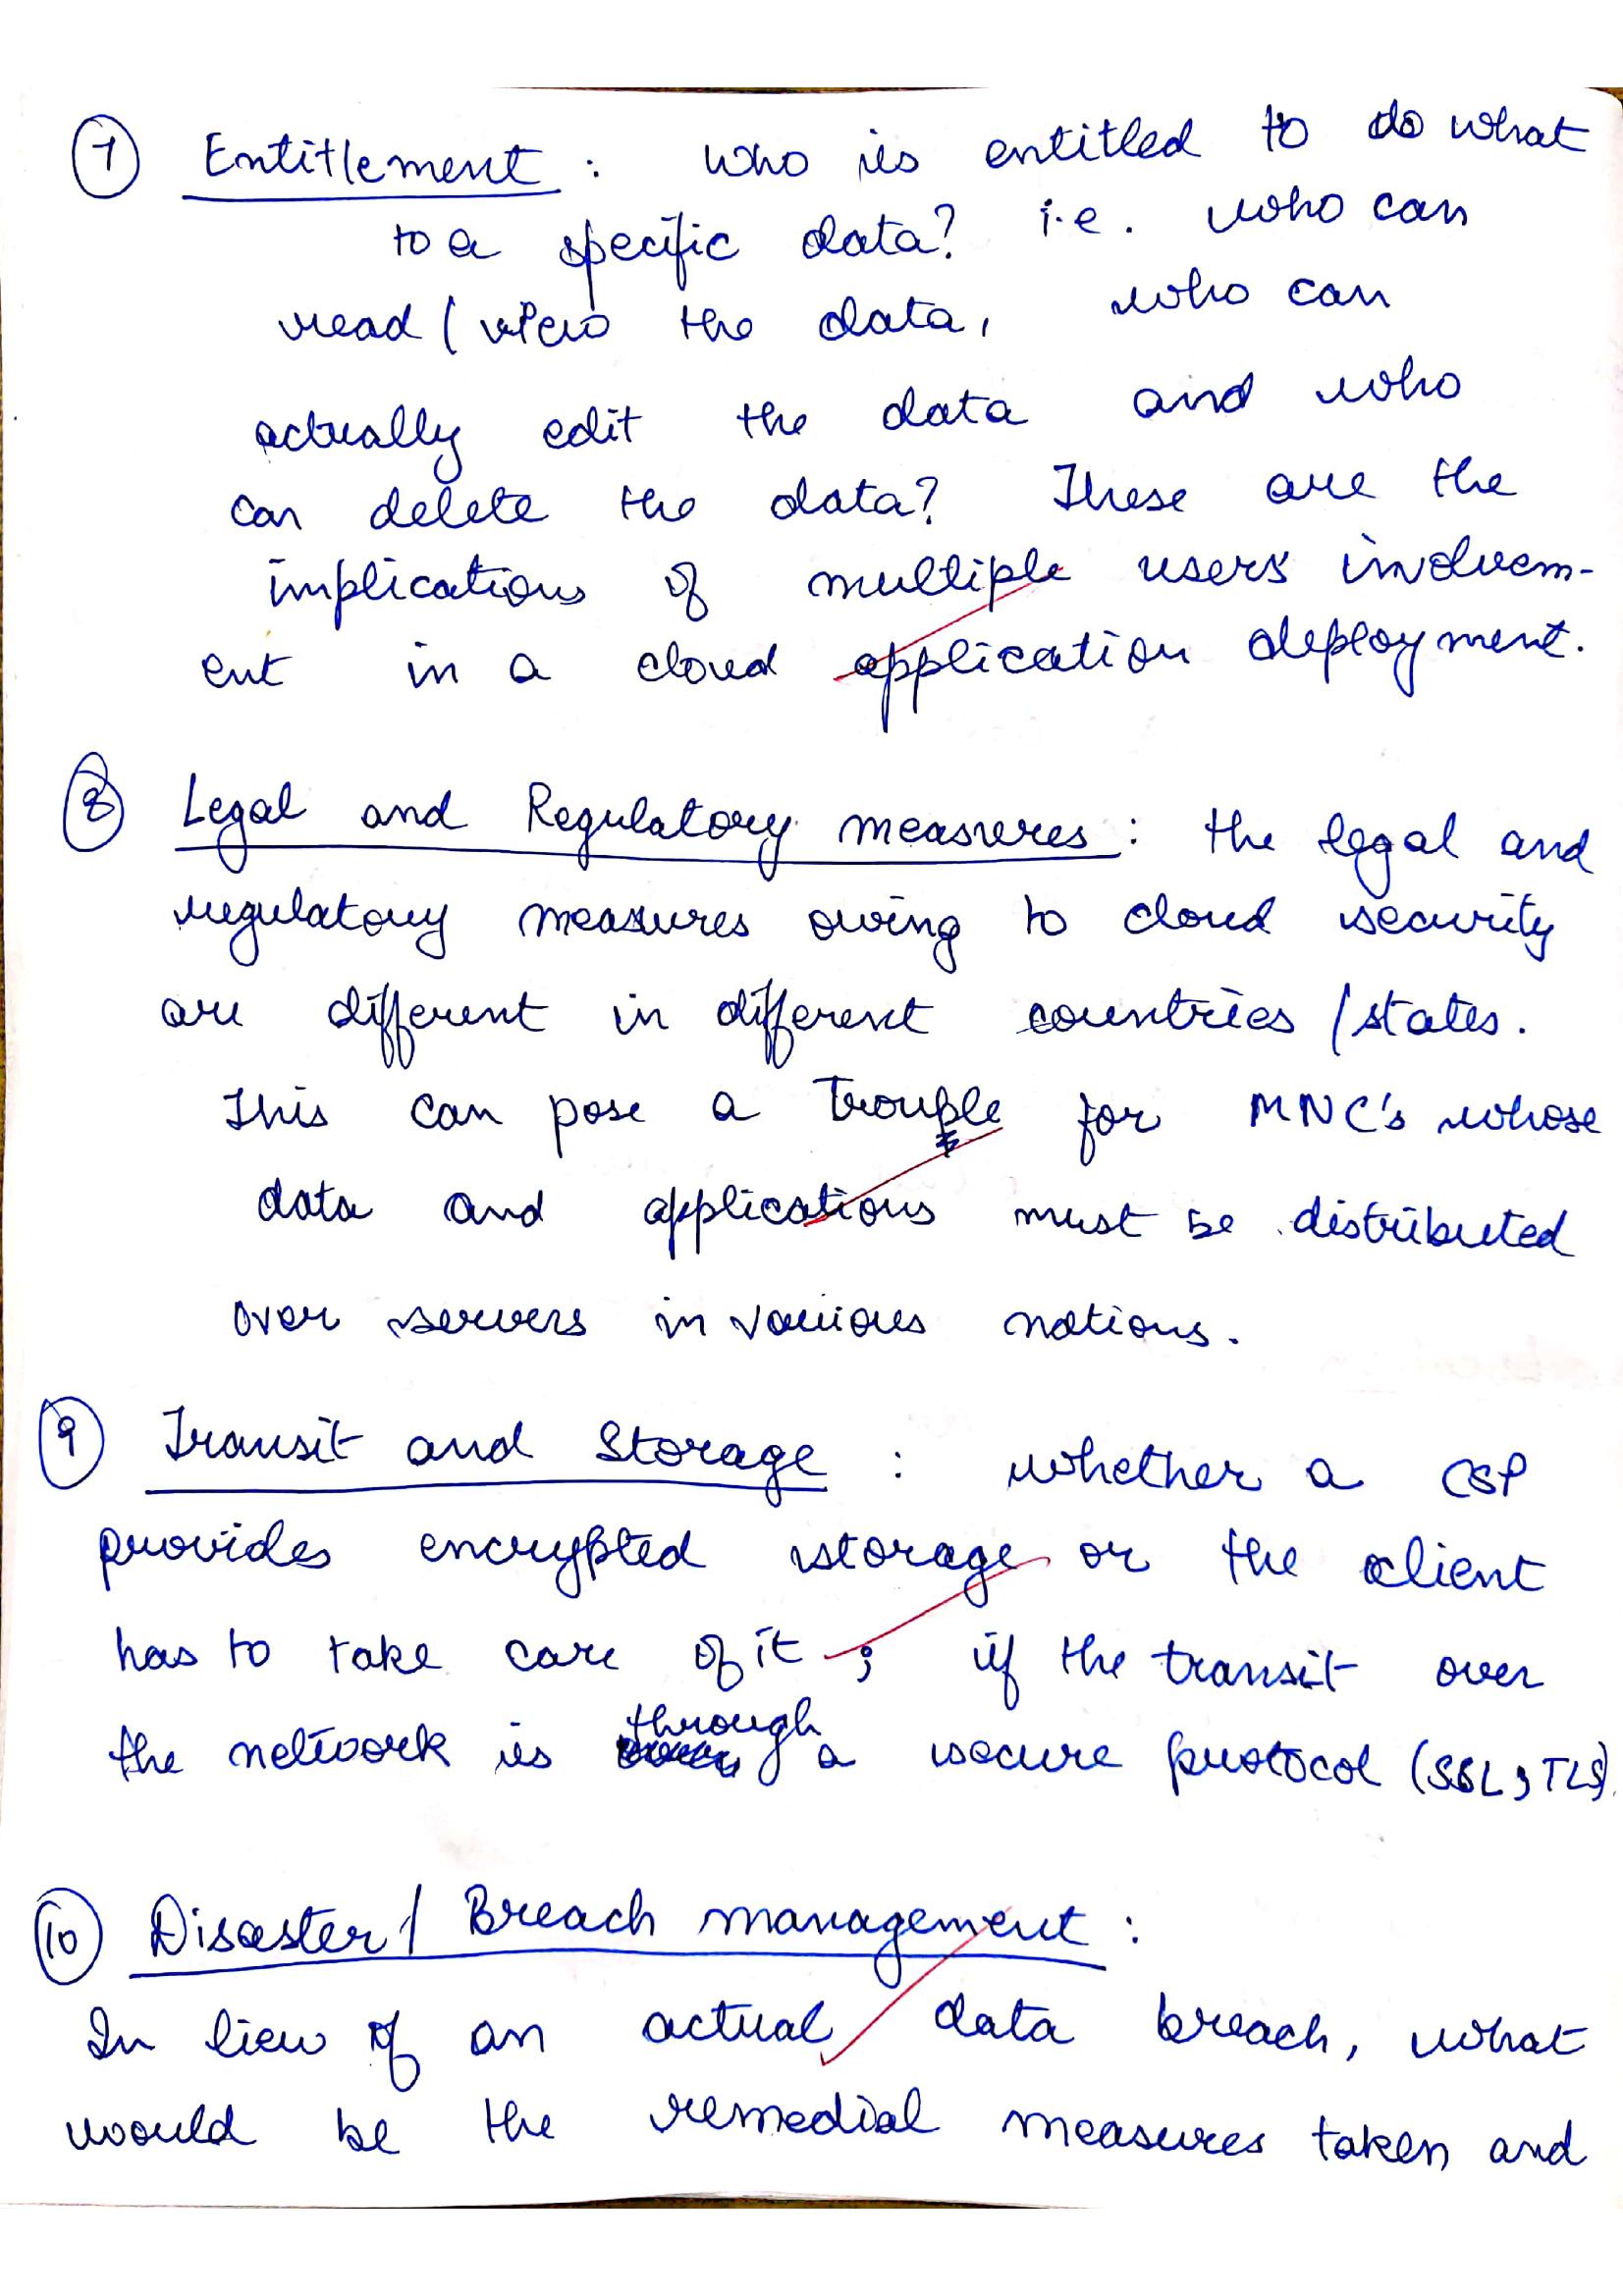 7 Entitlement : who is entitled to do what
to a specific data? i.e. who can
read / view the data, who can
actually edit the data and who
can delete the data? These are the
implications of multiple users involvem-
ent in a cloud application deployment.
8 Legal and Regulatory measures : the legal and
regulatory measures owing to cloud security
are different in different countries / states.
This can pose a trouble for MNC's whose
data and applications must be distributed
over servers in various nations.
9 Transit and Storage : whether a CSP
provides encrypted storage or the client
has to take care of it ; if the transit over
the network is through a secure protocol (SSL, TLS).
10 Disaster / Breach management :
In lieu of an actual data breach, what
would be the remedial measures taken and